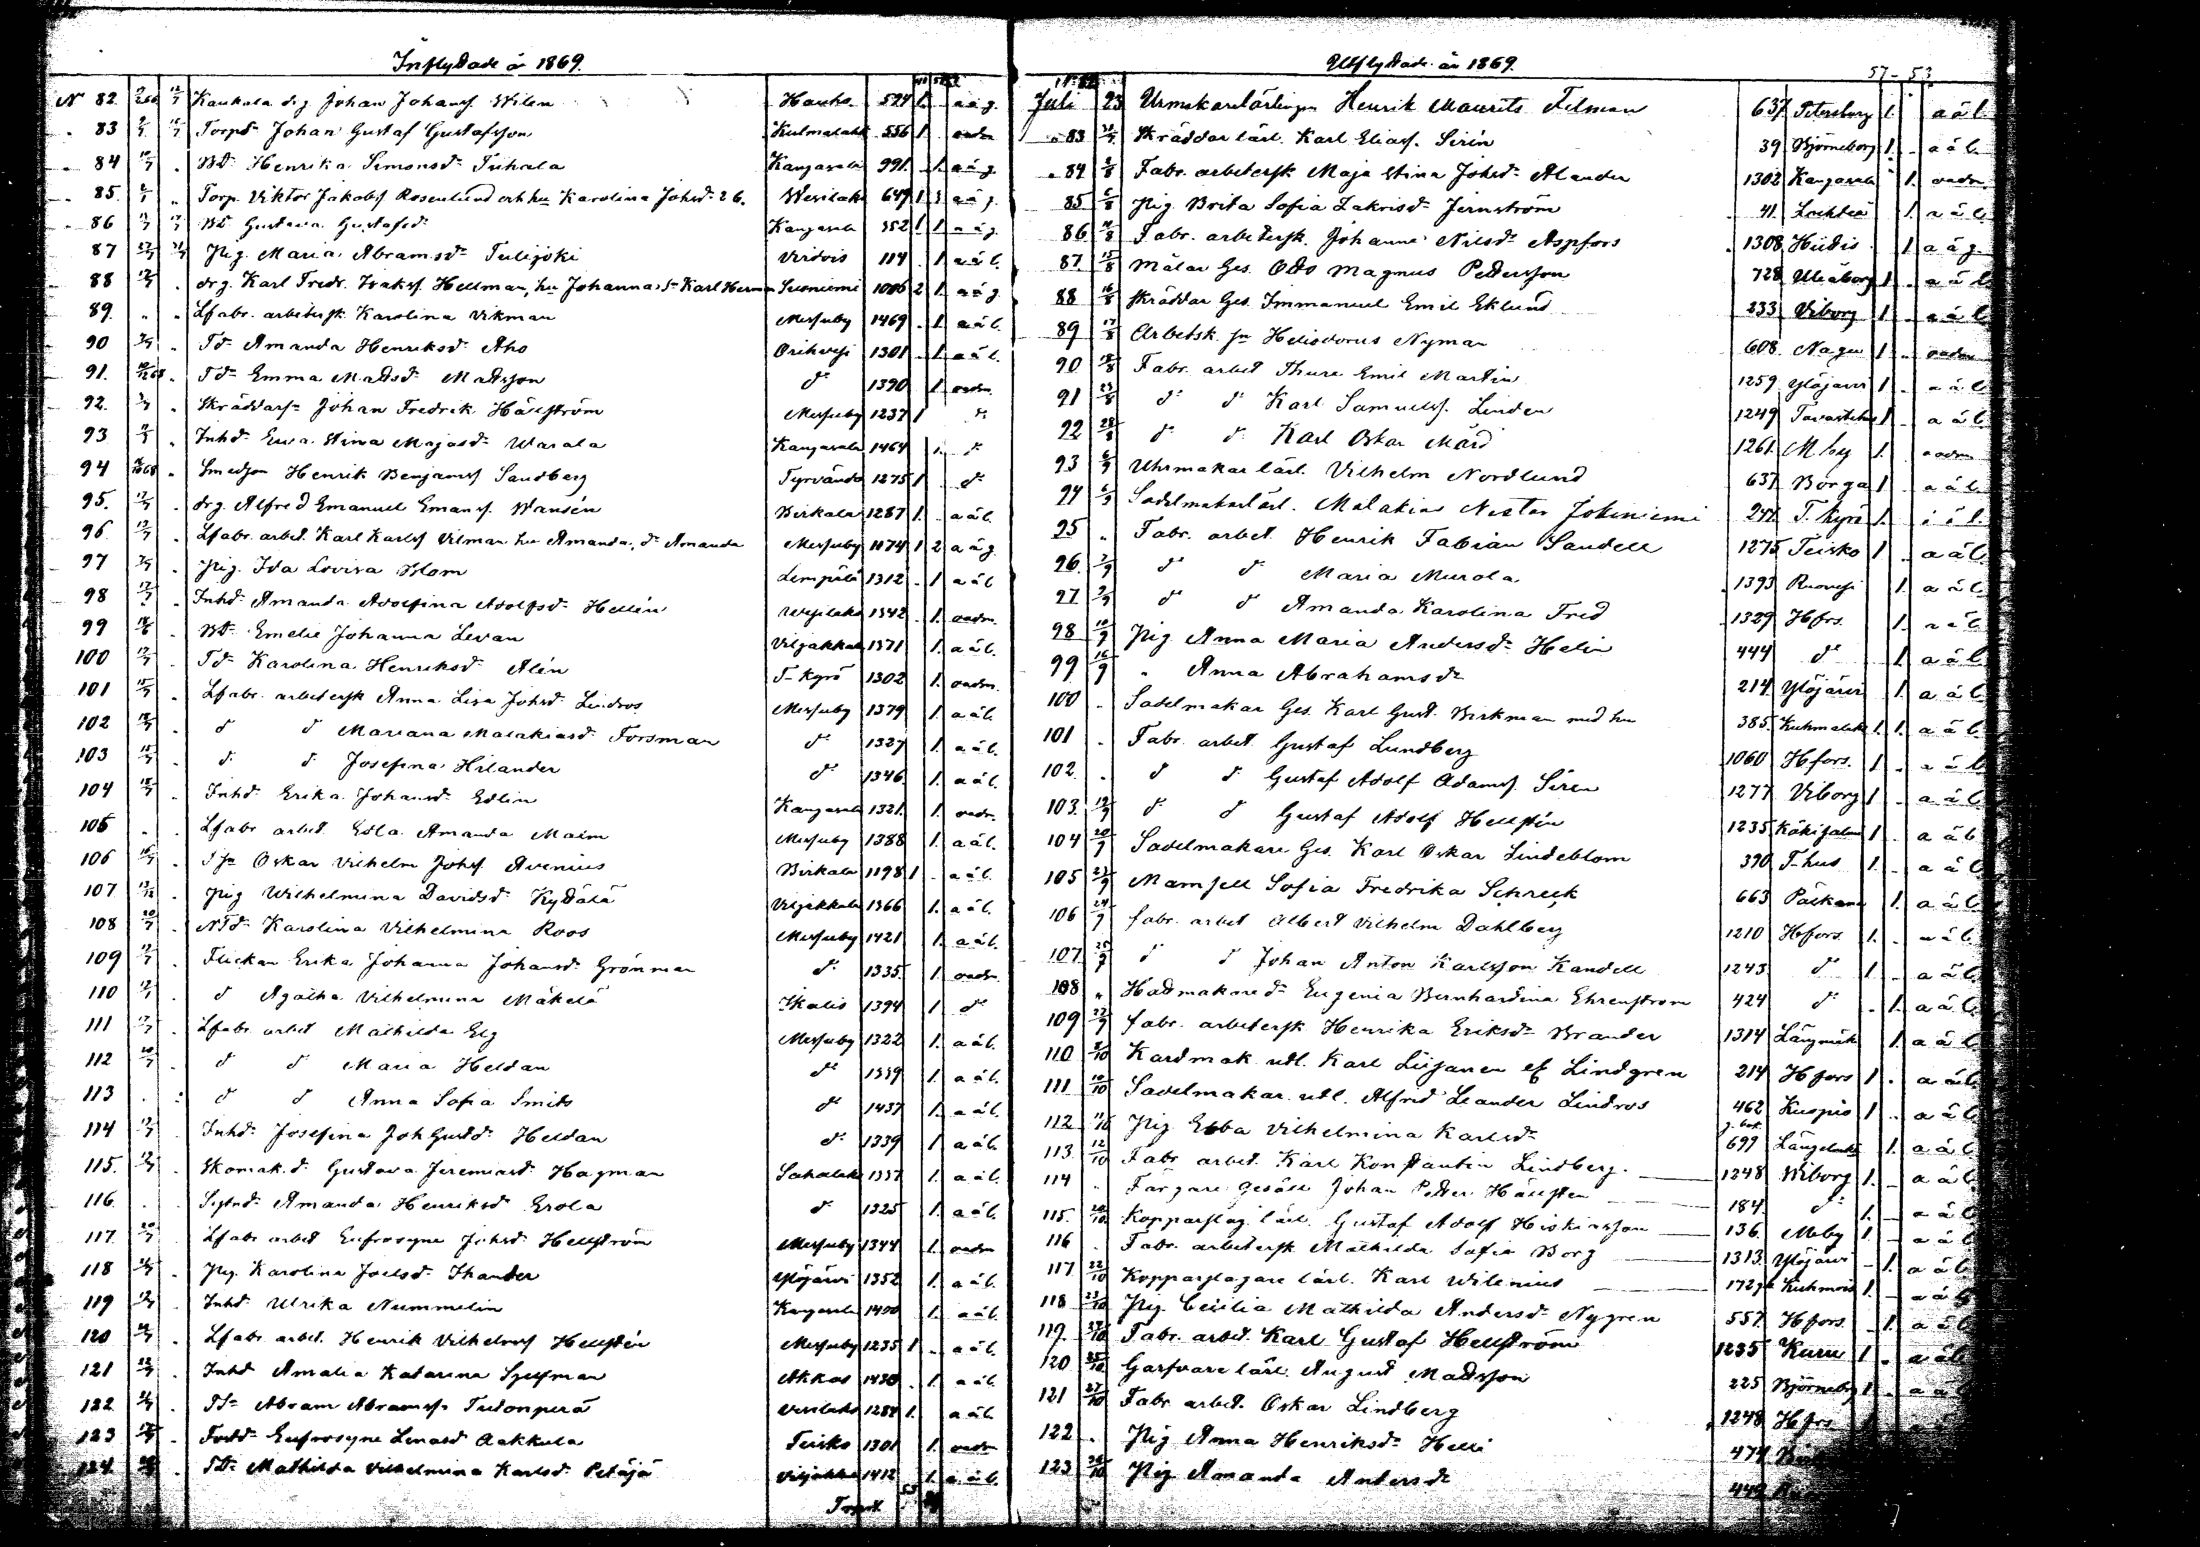 Inflyttade år 1869.
N 82. Kaukola drg Johan Johansf Wilen Hauho. 524 1. aäg.
" 83 Torpds Johan Gustaf Gustafsson Kulmalaks 556 1 oadm
" 84 Bd. Henrika Simonsdr Tuhala Kangasala 991. 1. aäg.
" 85. Torp. Viktor Jakobsf Rosenlund och hu Karolina Johsdr 2 b. Wesilaks 649 1 3 aäg.
" 86 Bd. Gustava Gustafsdr Kangasala 352 1 aäg.
87 Pig. Maria Abramsdr Tulijoki Virdois 114 1 aäl.
88 drg. Karl Fredr. Isaksf Hellman, hu Johanna, Sn Karl Herman Suoniemi 1006 2 1. aäg.
89. Lfabr. arbetersk. Karolina Vikman Messuby 1469 1. aäl.
90 Td. Amanda Henriksdr Aho Orihvesi 1301 1. aäl.
91. Tdr Emma Mattsdr Mattsson do 1390 1. oadm.
92. Skräddarsn Johan Fredrik Hällström Messuby 1237 1 do
93 Inhd. Eva Stina Majasdr Warala Kangasala 1464 1. do
94 Smedson Henrik Benjamsf Sandberg Tyrvändö 1275 1 do
95. drg. Alfred Emanuel Emansf. Wansén Birkala 1287 1. aäl.
96 Lfabr. arbet. Karl Karlsf Vilman hu Amanda, dr Amanda Messuby 1074 1 2 aäg.
97 Pig. Ida Lovisa Blom Lempälä 1312 1 aäl
98 Inhd. Amanda Adolfina Adolfsdr Hellén Wesilaks 1342 1. oadm.
99 Bd. Emelie Johanna Levan Viljakkala 1371 1. aäl.
100 Td. Karolina Henriksdr Alén T-Kyrö 1302 1. oadm.
101 Lfabr. arbetersk Anna Lisa Johsdr Lindros Messuby 1379 1. aäl.
102 d d Mariana Malakiasdr Forsman do 1327 1. aäl.
103 d. d. Josefina Hilander do 1346. 1. aäl.
104 Inhd. Erika Johansdr Edlin Kangasala 1321. 1. oadm.
105 Lfabr arbet. Edla Amanda Malm Messuby 1388 1. aäl.
106 Oskar Vilhelm Johsf Avenius Birkala 1198 1 aäl.
107 Pig Wilhelmina Davidsdr Kydälä Viljakkala 1366 1. aäl.
108 Karolina Vilhelmina Roos Messuby 1421 1. aäl.
109 Flickan Erika Johanna Johansdr Grönman do 1335. 1. oadm.
110 d Agatha Vilhelmina Mäkelä Ikalis 1394 1 do
111 Lfabr. arbet Mathilda Elg Messuby 1322 1. aäl.
112 d d Maria Heldan do 1339 1. aäl.
113 d d Anna Sofia Smitt do 1437 1. aäl.
114 Inhd. Josefina Joh Gustdr Heldan do 1339 1 aäl.
115. Skomak. dr Gustava Jeremiasdr Hagman Sahalaks 1337 1. aäl.
116. Amanda Henriksdr Erola do 1325 1. aäl.
117. Lfabr arbet Eufrosyne Johsdr Hellström Messuby 1344 1. oadm
118 Pig. Karolina Joelsdr Thander Ylöjärvi 1352 1. aäl.
119 Inhd. Ulrika Nummelin Kangasala 1400 1. aäl.
120 Lfabr arbet. Henrik Vilhelmsf Hellstén Messuby 1235 1 aäl.
121 Inhd Amalia Katarina Akkas 1430 1. aäl.
122 Abram Abramsf. Tudonperä Vesilaks 1284 1. aäl.
123 Eufrosyne Lenasdr Aakkula Teisko 1301 1. oadm
124. Mathilda Vilhelmina Karlsdr Petäjä Viljakkala 1412 1. aäl.
Transp
Utflyttade år 1869.
57 - 53
Juli 23 Urmakarelärlingen Henrik Maurits Felman 637 Petersburg 1. aäl.
" 83 Skräddar lärl. Karl Eliasf. Sirén 39 Björneborg 1. aäl.
" 84 Fabr. arbetersk Maja Stina Johsdr Alander 1302 Kangasala 1. oadm.
85 Pig Brita Sofia Zakrisdr Jernström 41. Lochteå 1. aäl.
86 Fabr. arbetersk. Johanna Nilsdr Aspfors 1308 Hiitis 1 aäg.
87. Målar Ges. Otto Magnus Pettersson 728 Uleåborg 1 aäl.
88 Skräddar Ges. Immanuel Emil Eklund 233 Viborg 1. aäl.
89 Arbetsk. sn Heliodorus Nyman 608. Nagu 1 oadm
90 Fabr. arbet Thure Emil Martin 1259 Ylöjärvi 1 aäl.
91 d. d. Karl Samuelsf. Linden 1249 Tavastehus 1 aäl.
92 d. d. Karl Oskar Mård 1261. M.by 1. oadm
93 Uhrmakar lärl. Vilhelm Nordlund 637 Borgå 1. aäl.
94 Sadelmakarlärl. Malakias Nestor Jokiniemi 241. T. Kyrö 1. i äl.
95 Fabr. arbet. Henrik Fabian Sandell 1275 Teisko 1 aäl.
96. d. d. Maria Murola 1393 Ruovesi 1. aäl.
97 d d Amanda Karolina Fred 1329 Hfors. 1. aäl.
98 Pig Anna Maria Andersdr Helin 444 do 1. aäl.
99 " Anna Abrahamsdr 214. Ylöjärvi 1. aäl.
100 Sadelmakar Ges. Karl Gust. Birkman med hu 385. Kuhmalaks 1. 1. aäl.
101 Fabr. arbet. Gustaf Lundberg 1060 Hfors. 1. aäl.
102. d d Gustaf Adolf Adamsf. Sirén 1277 Viborg 1 aäl.
103. d d Gustaf Adolf Hellstén 1235 Käkisalmi 1 aäl.
104 Sadelmakare Ges. Karl Oskar Lindeblom 390 T-hus 1. aäl.
105 Mamsell Sofia Fredrika Schreck 663 Pälkäne 1. aäl.
106 fabr. arbet Albert Vilhelm Dahlberg 1210 Hfors. 1. aäl.
107. d d Johan Anton Karlsson Kandell 1243 do 1. aäl.
108 Hattmakare dr Eugenia Bernhardina Ehrenström 424 do 1. aäl.
109 fabr. arbetersk Henrika Eriksdr Brander 1314 Längelmäki 1. aäl.
110 Kardmak. utl. Karl Liljaner ef Lindgren 214 Hfors 1. aäl.
111 Sadelmakar. utl. Alfred Leander Lindros 462 Kuopio 1 aäl.
112 Pig Ebba Vilhelmina Karlsdr 699 Längelmäki 1. aäl.
113 Fabr arbet. Karl Konstantin Lindberg. 1248 Wiborg 1. aäl.
114 Färgare Gesäll Johan Petter Hällsten 184. do 1. aäl.
115. Kopparslag. lärl. Gustaf Adolf Hiskiasson 136. M.by 1. aäl.
116 Fabr. arbetersk Mathilda Sofia Borg 1313. Ylöjärvi 1. aäl.
117 Kopparslagare lärl. Karl Wilenius 172 Kuhmois 1. aäl.
118 Pig Cecilia Mathilda Andersdr Nygren 557. Hfors. 1. aäl.
119. Fabr. arbet. Karl Gustaf Hellström 1235 Kuru 1. aäl.
120 Garfvare lärl. August Mattsson 225 Björneborg 1. aäl.
121 Fabr arbet. Oskar Lindberg 1248 Hfrs.
122 Pig Anna Henriksdr Helli 474
123 Pig Amanda Andersdr 442